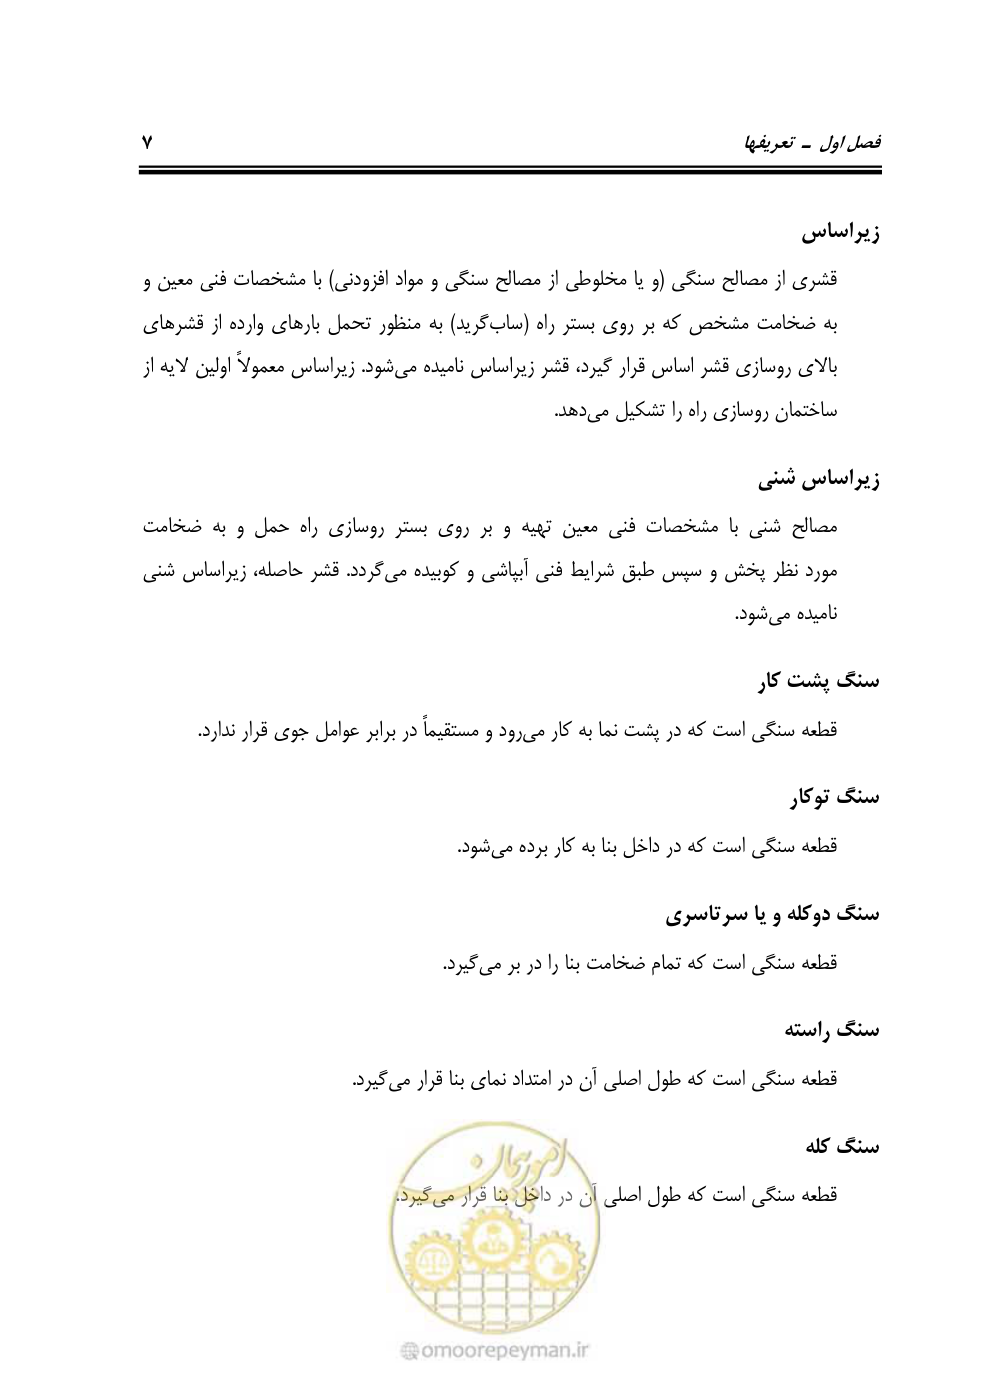 فصل اول ـ تعریفها ۷
زیراساس
قشری از مصالح سنگی (و یا مخلوطی از مصالح سنگی و مواد افزودنی) با مشخصات فنی معین و
به ضخامت مشخص که بر روی بستر راه (ساب‌گرید) به منظور تحمل بارهای وارده از قشرهای
بالای روسازی قشر اساس قرار گیرد، قشر زیراساس نامیده می‌شود. زیراساس معمولاً اولین لایه از
ساختمان روسازی راه را تشکیل می‌دهد.
زیراساس شنی
مصالح شنی با مشخصات فنی معین تهیه و بر روی بستر روسازی راه حمل و به ضخامت
مورد نظر پخش و سپس طبق شرایط فنی آبپاشی و کوبیده می‌گردد. قشر حاصله، زیراساس شنی
نامیده می‌شود.
سنگ پشت کار
قطعه سنگی است که در پشت نما به کار می‌رود و مستقیماً در برابر عوامل جوی قرار ندارد.
سنگ توکار
قطعه سنگی است که در داخل بنا به کار برده می‌شود.
سنگ دوکله و یا سرتاسری
قطعه سنگی است که تمام ضخامت بنا را در بر می‌گیرد.
سنگ راسته
قطعه سنگی است که طول اصلی آن در امتداد نمای بنا قرار می‌گیرد.
سنگ کله
قطعه سنگی است که طول اصلی آن در داخل بنا قرار می‌گیرد.
امور پیمان
@omoorepeyman.ir